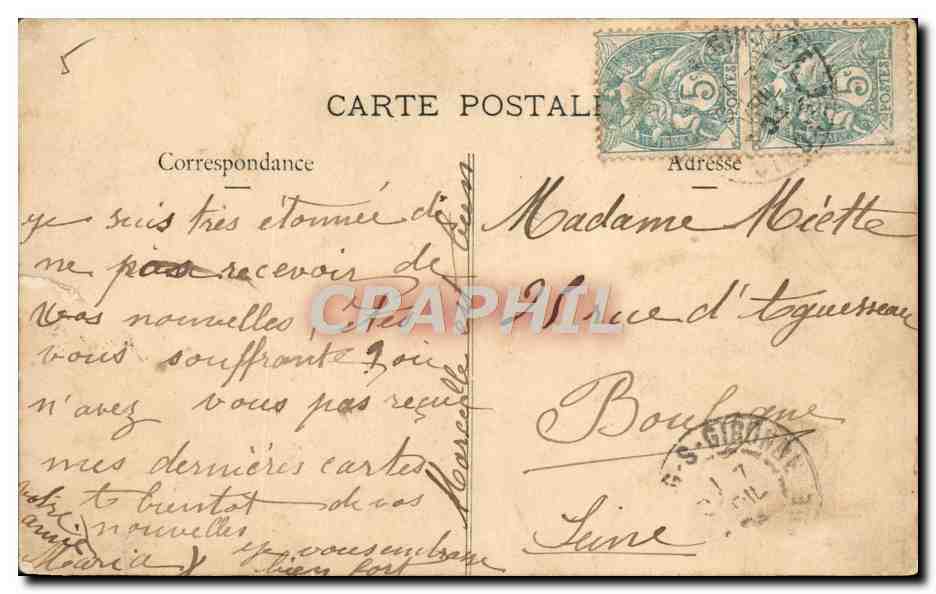 5
CARTE POSTALE
Correspondance
Adresse
je suis très étonnée de
ne pas recevoir de
vos nouvelles, êtes
vous souffrante? ou
n'avez vous pas reçu
mes dernières cartes
à bientot de vos
nouvelles
je vous embrasse
bien fort
votre
amie
Maria
Marcelle
Madame Miette
28 rue d'Aguesseau
Boulogne
Seine
5c
POSTES
5c
POSTES
CPRAPHIL